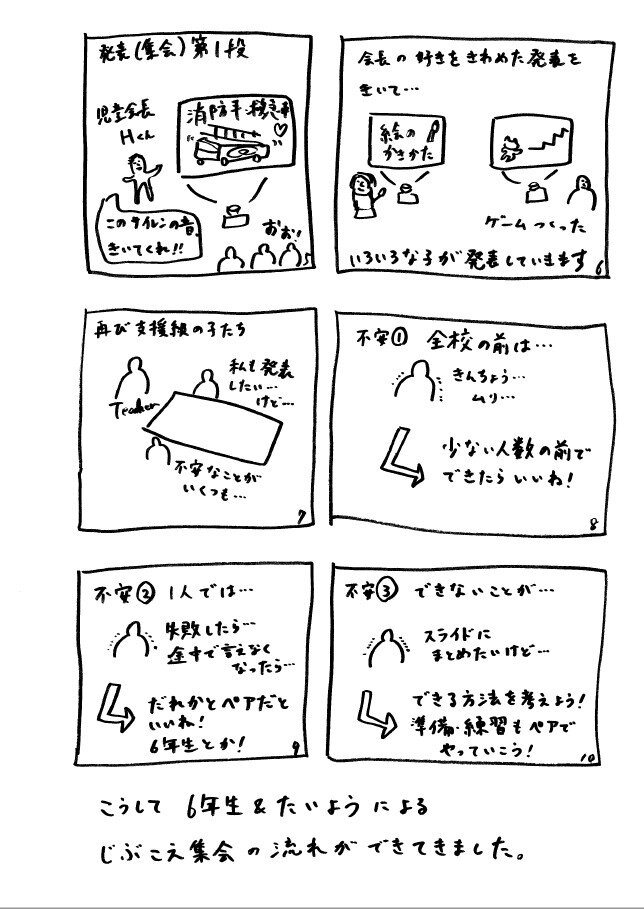 発表(集会)第1段
児童会長
Hくん
消防車・救急車
このサイレンの音
きいてくれ!!
おぉ!
5
会長の好きをきわめた発表を
きいて…
絵の
かきかた
ゲームつくった
いろいろな子が発表していきます
6
再び支援組の子たち
Teacher
私も発表
したい…
けど…
不安なことが
いくつも…
7
不安① 全校の前は…
きんちょう…
ムリ…
少ない人数の前で
できたらいいね!
8
不安② 1人では…
失敗したら…
途中で言えなく
なったら…
だれかとペアだと
いいね!
6年生とか!
9
不安③ できないことが…
スライドに
まとめたいけど…
できる方法を考えよう!
準備・練習もペアで
やっていこう!
10
こうして 6年生&たいようによる
じぶこえ集会の流れができてきました。